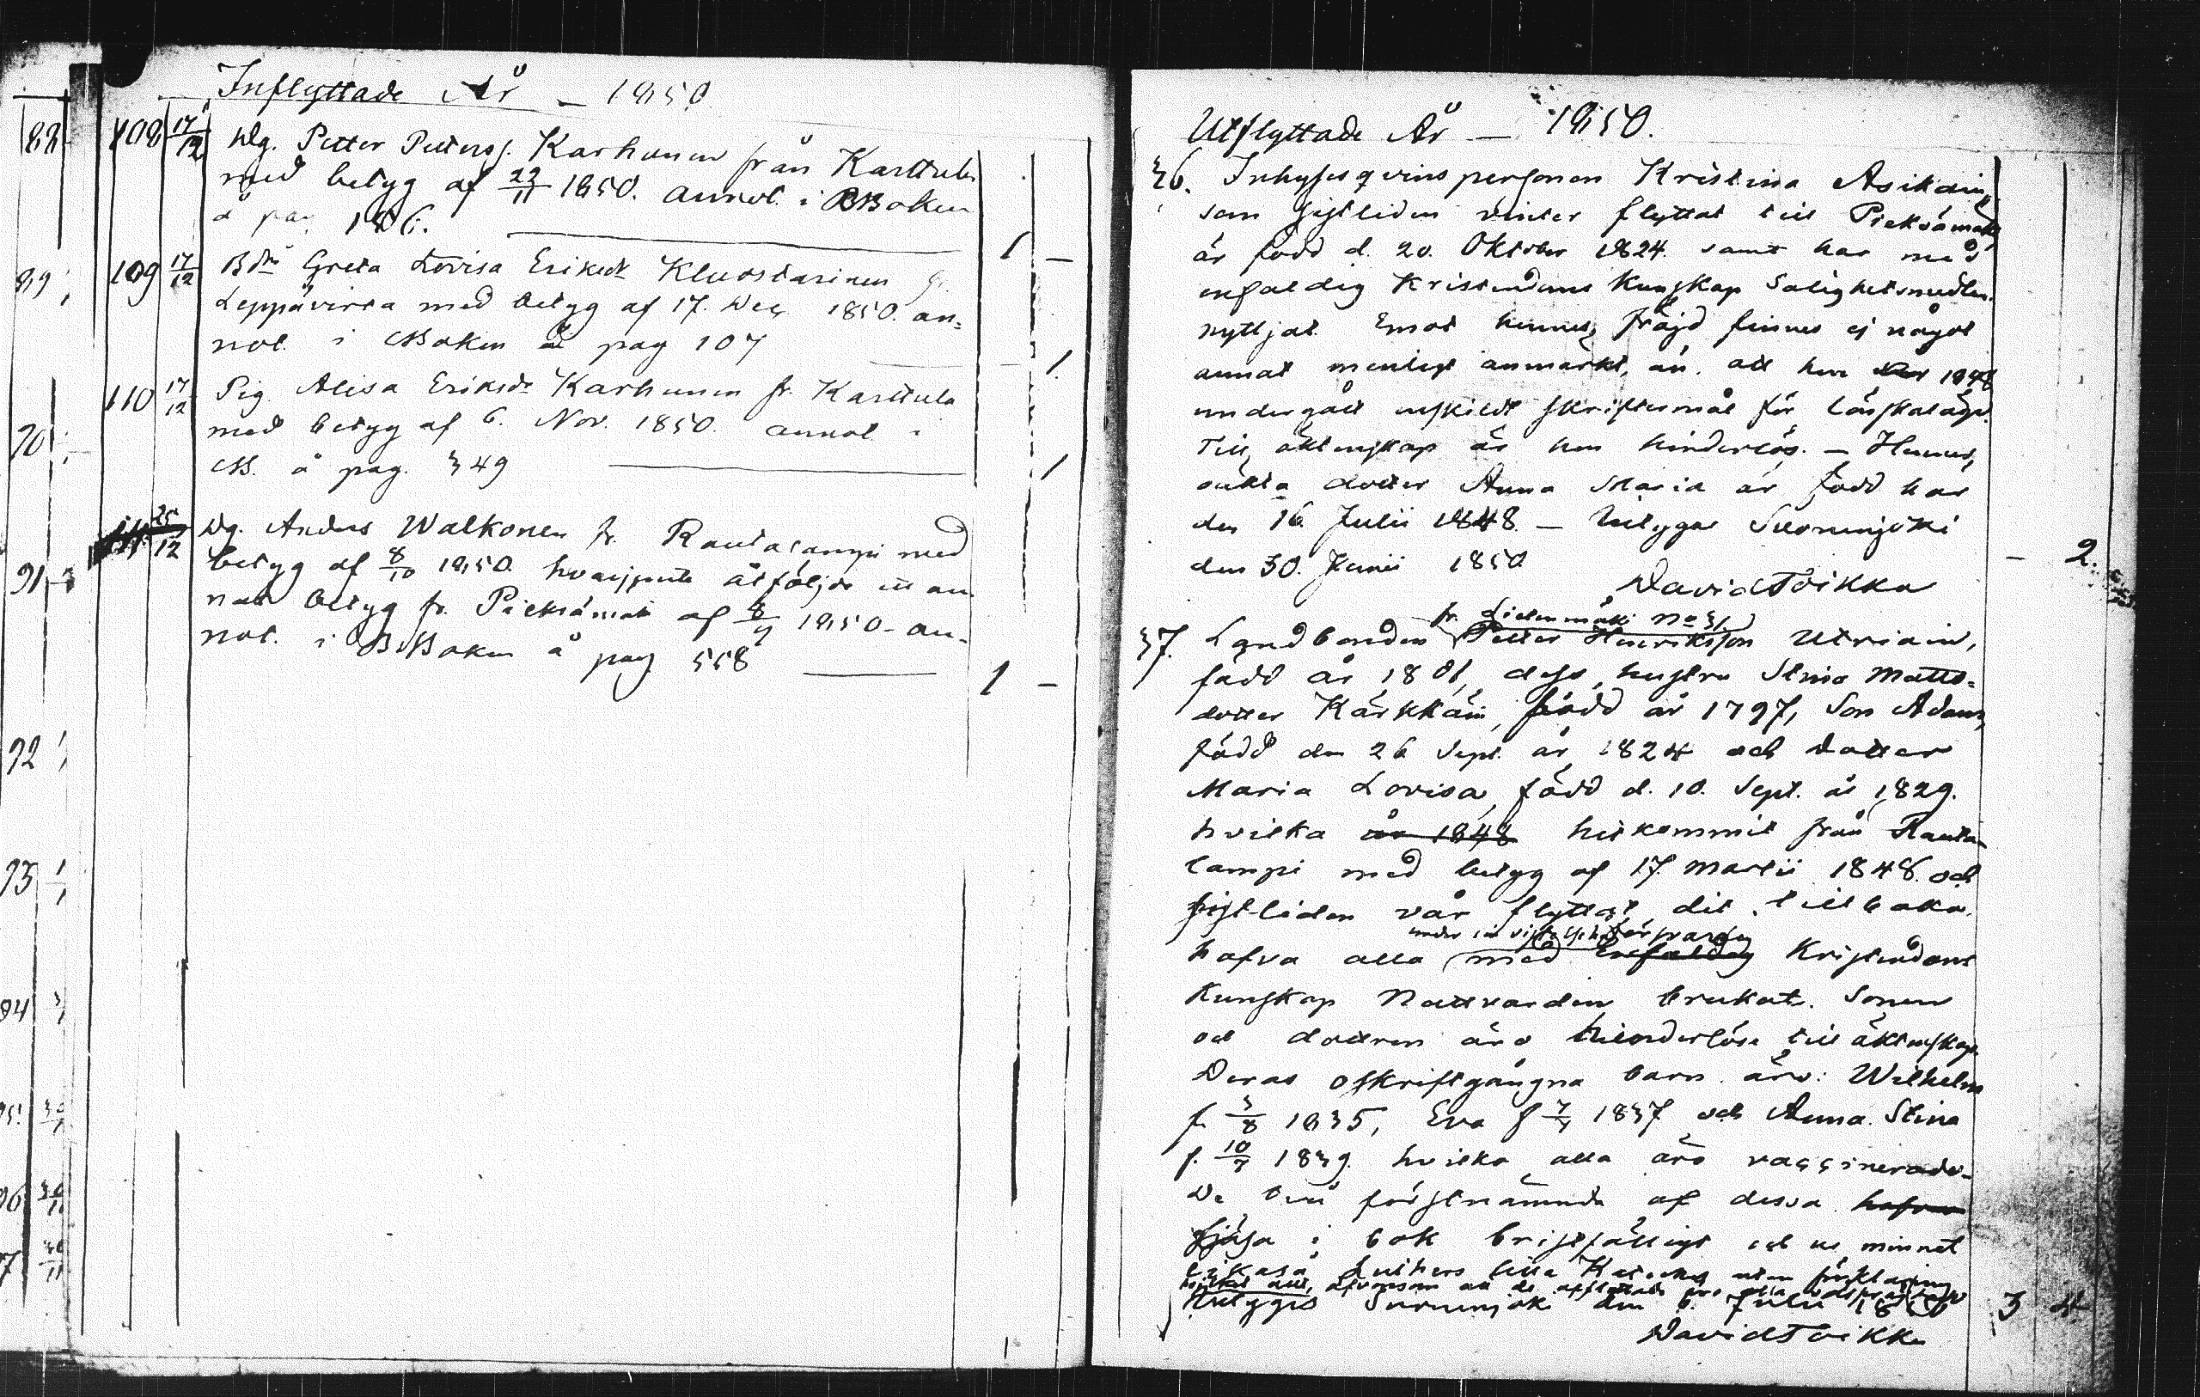 Inflyttade År – 1850
88
108 17/12 Dg. Petter Petterss. Karhonen från Karttula
med betyg af 22/11 1850. annot. i BBoken
å pag 186.
1 –
89
109 17/12 Bdtr Greta Lovisa Eriksdr Kluostarinen fr.
Leppävirta med betyg af 17. Dec 1850. an=
not. i CBoken å pag 107
– 1
110 17/12 Pig. Alisa Eriksdr Karhunen fr. Karttula
90
med betyg af 6. Nov. 1850. annot. i
CB. å pag. 349
1
25/12 Dg. Anders Walkonen fr. Rautalampi med
91
betyg af 8/10 1850. hvarjemte åtföljde ett an-
nat betyg fr. Pieksämäki af 8/9 1850 – an-
not. i BBoken å pag 558
1 –
92
93
94
95
96
7
Utflyttade År – 1850.
36. Inhyses qvinspersonen Kristina Asikain
som sistliden vinter flyttat till Pieksämäki
är född d. 20. Oktober 1824. samt har med
enfaldig Kristendoms Kunskap Salighetsmedlen
nyttjat. Emot hennes fräjd finnes ej något
annat menligt anmärkt, än att hon 1848
undergått enskildt skriftermål för lönskaläge.
Till äktenskap är hon hinderlös. – Hennes
oäkta dotter Anna Maria är född här
den 16. Julii 1848. – betygar Suonenjoki
den 30. Junii 1850
– 2.
David Toikka
fr. Lietenmäki No 31
37. Landbonden Petter Henriksson Utriain,
född år 1801, dess hustru Stina Matts=
dotter Kärkkäin, född år 1797, Son Adam,
född den 26 Sept. år 1824 och dotter
Maria Lovisa, född d. 10. Sept. år 1829.
hvilka år 1848 hitkommit från Rauta-
lampi med betyg af 17. Martii 1848. och
sistliden vår flyttat dit tillbaka.
under sin vistelse här
hafva alla med enfaldig Kristendoms
Kunskap Nattvarden brukat. Sonen
och dottren äro hinderlösa till äktenskap.
Deras oskriftgångna barn äro: Wilhelm
f. 3/8 1835, Eva f 7/4 1837 och Anna Stina
f. 10/7 1839. hvilka alla äro vaccinerade.
De två förstnämnda af dessa hafva
i bok bristfälligt och ur minnet
likaså Luthers lilla Kateches utan förklaring
Betygas Suonenjoki den 6. Julii 1850
3 4.
David Toikka